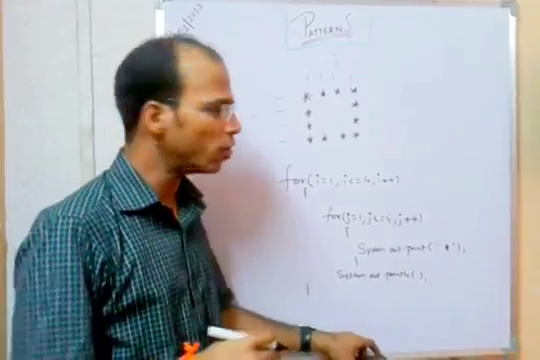 PATTERNS
* * * *
* *
* *
* * * *
for(i=1, i<=4, i++)
{
for(j=1, j<=4, j++)
{
System out print(" * "),
}
System out println( ),
}